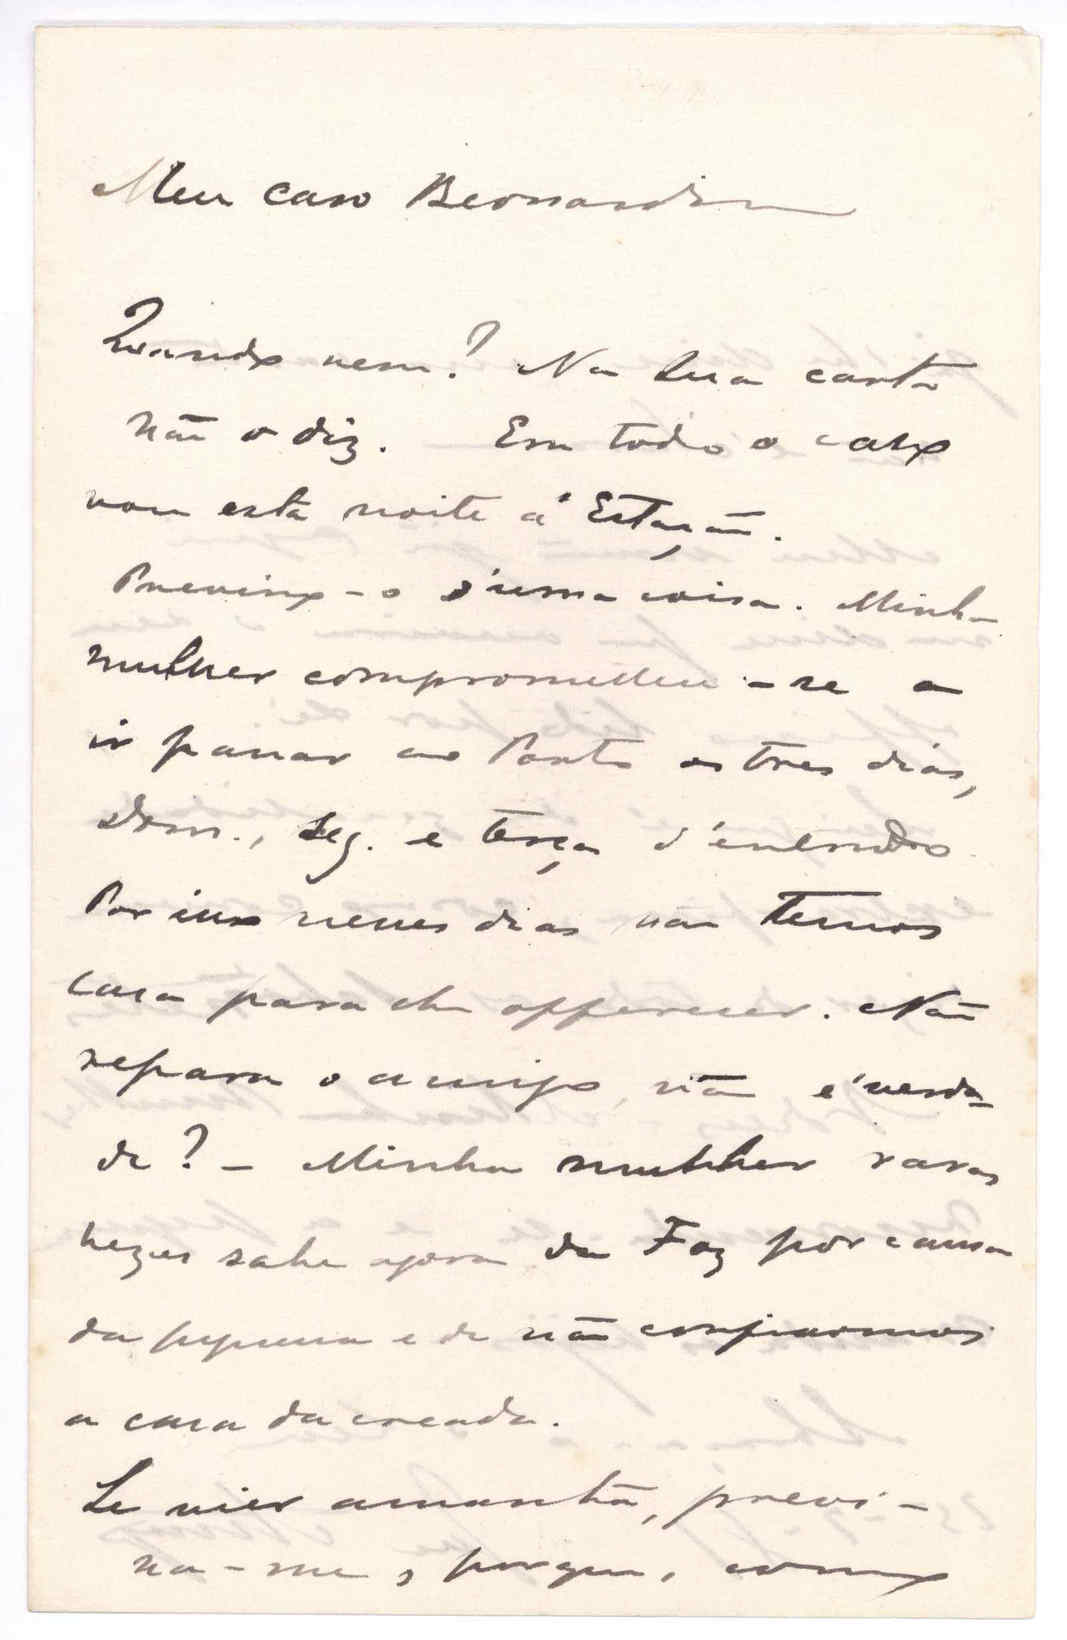 Meu caro Bernardino
Quando vem? Na sua carta
não o diz. Em todo o caso
vou esta noite á Estação.
Previno-o d'uma coisa. Minha
mulher comprometteu-se a
ir passar ao Porto os tres dias,
Dom., seg. e terça d'entrudo.
Por isso nesses dias não temos
casa para lhe offerecer. Não
repara o amigo, não é verda-
de? - Minha mulher raras
vezes sahe agora da Foz por causa
da pequena e de não confiarmos
a casa da creada.
Se vier amanhã, previ-
na-me, porque, como